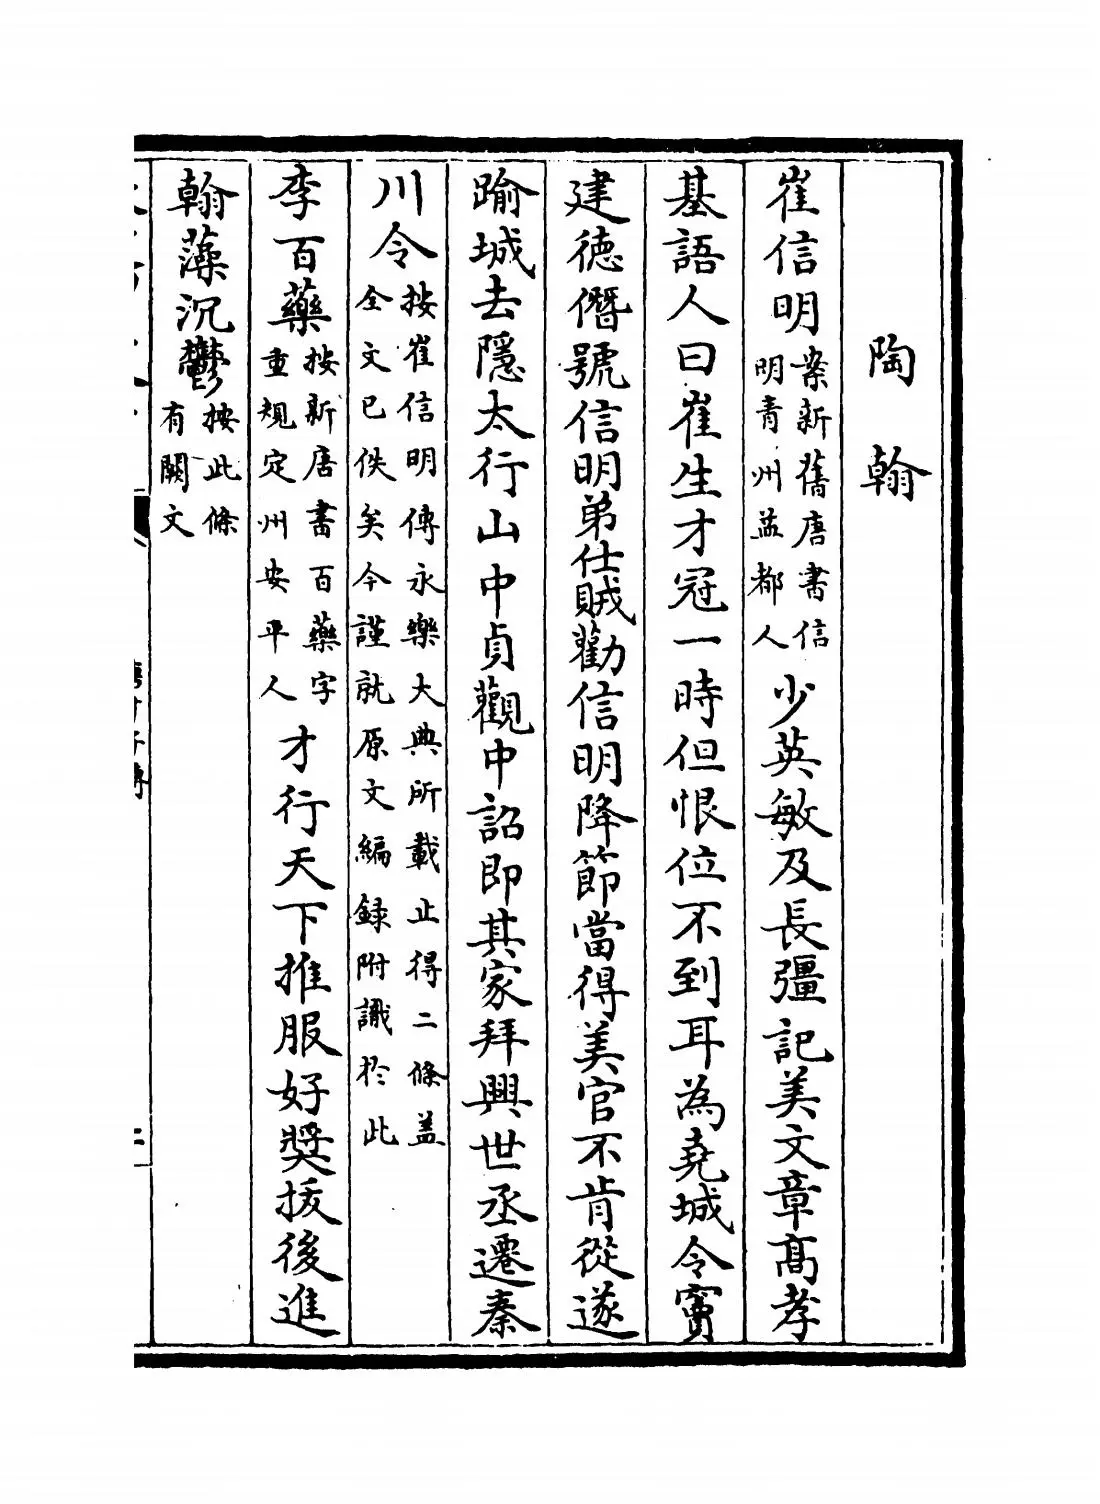 陶翰
崔信明案新舊唐書信明青州益都人少英敏及長彊記美文章高孝
基語人曰崔生才冠一時但恨位不到耳為堯城令竇
建德僭號信明弟仕賊勸信明降節當得美官不肯從遂
踰城去隱太行山中貞觀中詔即其家拜興世丞遷秦
川令按崔信明傳永樂大典所載止得二條蓋全文已佚矣今謹就原文編録附識於此
李百藥按新唐書百藥字重規定州安平人才行天下推服好獎拔後進
翰藻沉鬱按此條有闕文